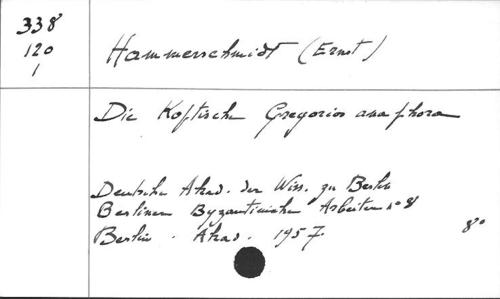 338
120
1
Hammerschmidt (Ernst)
Die Koptische Gregorios anaphora
Deutsche Akad. der Wiss. zu Berlin
Berliner Byzantinische Arbeiten n° 8
Berlin. Akad. 1957.
8°